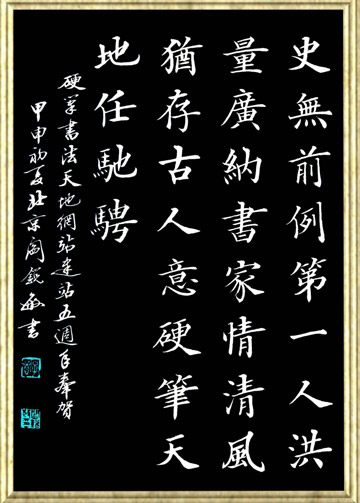 史無前例第一人洪
量廣納書家情清風
猶存古人意硬筆天
地任馳騁
硬筆書法天地網站建站五週年奉賀
甲申初夏北京閻銳敏書